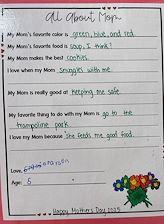 All About Mom
My Mom's favorite color is green, blue, and red.
My Mom's favorite food is soup, I think?
My Mom makes the best cookies.
I love when my Mom snuggles with me.
My Mom is really good at keeping me safe.
My favorite thing to do with my Mom is go to the
trampoline park.
I love my Mom because she feeds me good food.
Love,
Age: 5
Happy Mothers Day 2025